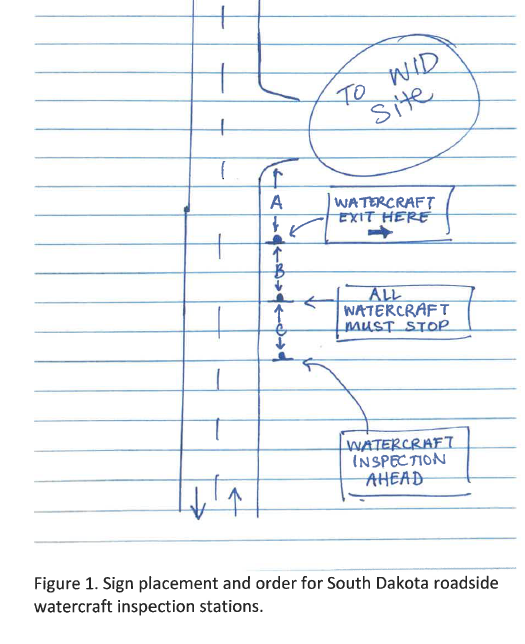 TO WID
Site
A
WATERCRAFT
EXIT HERE
B
ALL
WATERCRAFT
MUST STOP
C
WATERCRAFT
INSPECTION
AHEAD
Figure 1. Sign placement and order for South Dakota roadside
watercraft inspection stations.